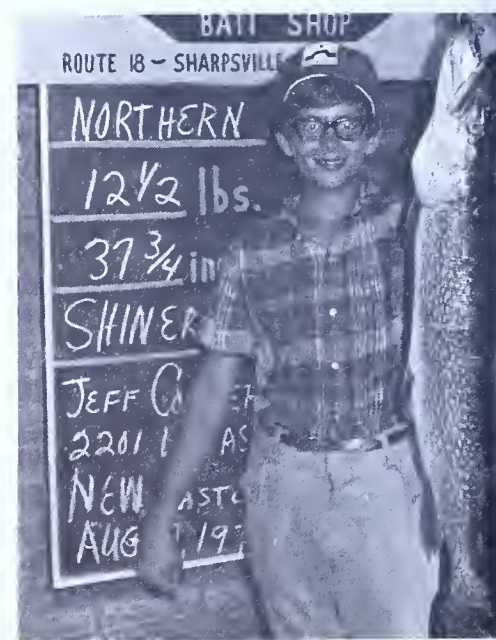 BAIT SHOP
ROUTE 18 - SHARPSVILLE
NORTHERN
12 1/2 lbs.
37 3/4 in
SHINER
JEFF
2201
NEW
AUG